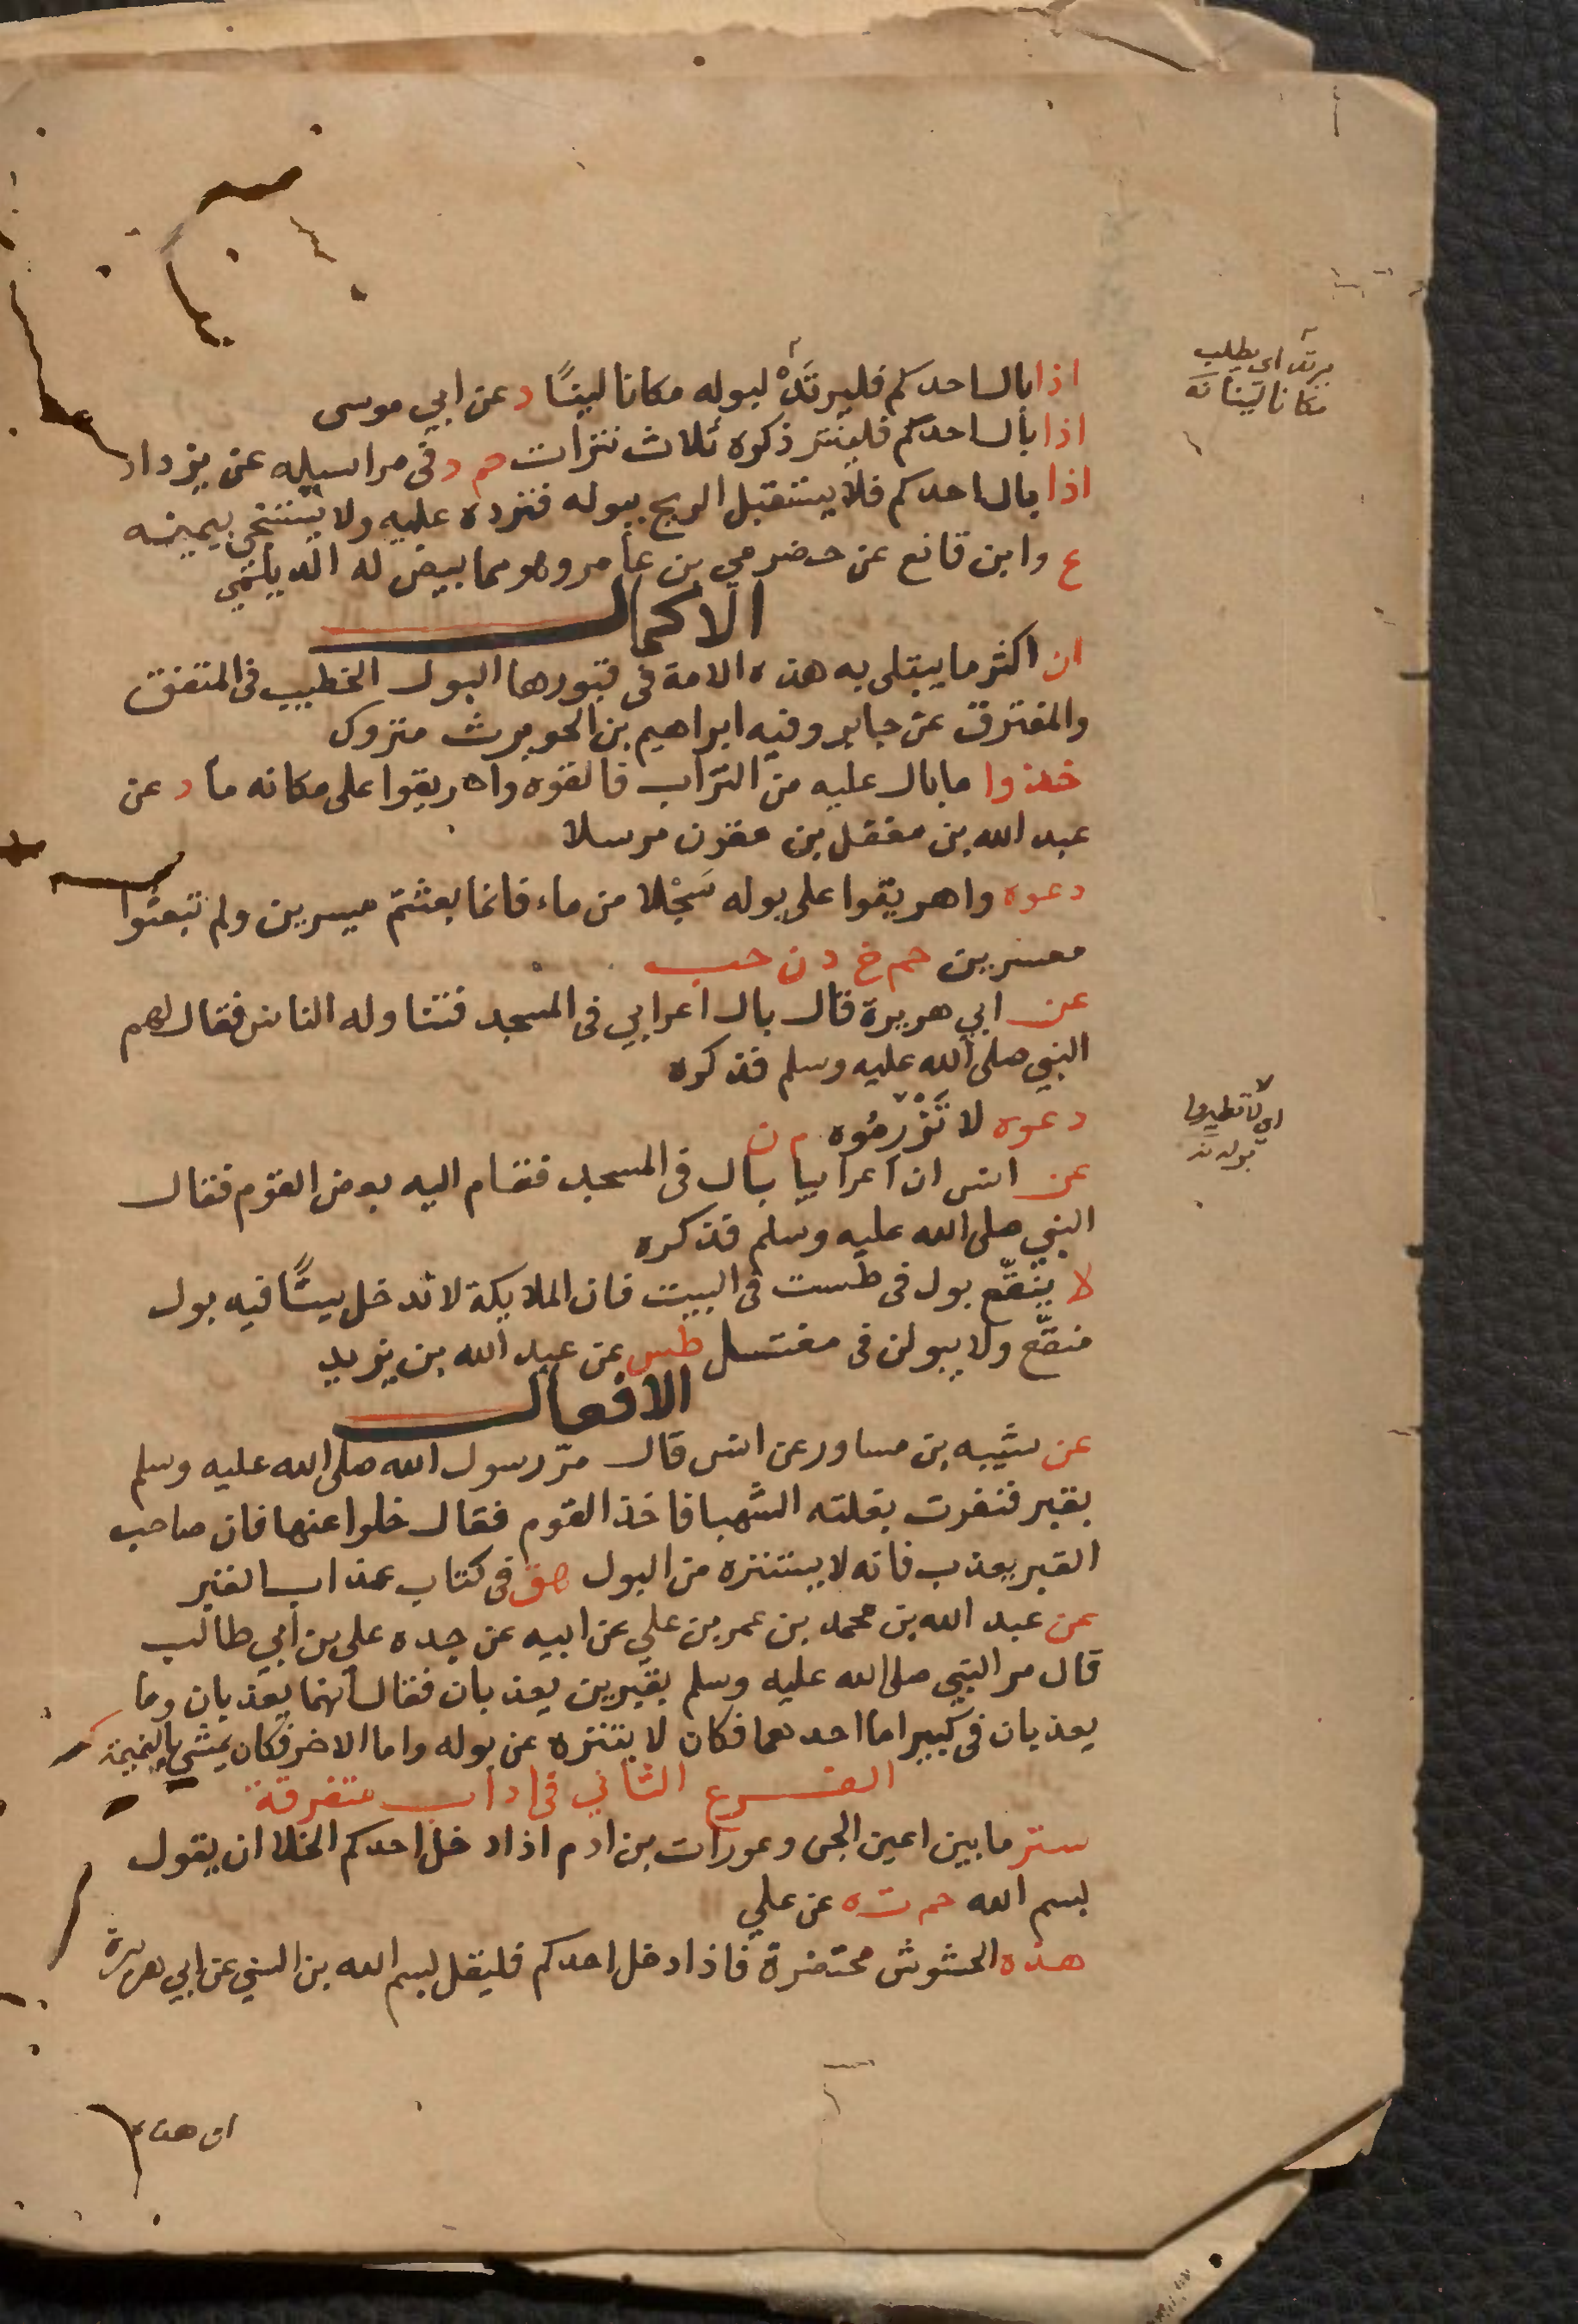 اذا بال احدكم فليرتَدْ لبوله مكانا لينًا د عن ابي موسى
يرتد اى يطلب
مكانا لينا نه
اذا بال احدكم فلينتر ذكره ثلاث نترات حم د فى مراسيله عن يزداد
اذا بال احدكم فلا يستقبل الريح ببوله فترده عليه ولا يستنجي بيمينه
ع وابن قانع عن حضرمي بن عامر وهو مما بيض له الديلمي
الاكمال
ان اكثر ما يبتلى به هذه الامة فى قبورها البول الخطيب فى المتفق
والمفترق عن جابر وفيه ابراهيم بن الحويرث متروك
خذوا ما بال عليه من التراب فالقوه واهريقوا على مكانه ما د عن
عبد الله بن مغفل بن مقرن مرسلا
دعوه واهريقوا على بوله سَجْلا من ماء فانما بعثتم ميسرين ولم تبعثوا
معسرين حم خ د ن حب
عن ابي هريرة قال بال اعرابي فى المسجد فتناوله الناس فقال لهم
النبي صلى الله عليه وسلم فذكره
دعوه لا تَزْرِمُوه م ن
اى لا تقطعوا
بوله نه
عن انس ان اعرابيا بال فى المسجد فقام اليه بعض القوم فقال
النبي صلى الله عليه وسلم فذكره
لا ينقّع بول فى طست فى البيت فان الملايكة لا تدخل بيتًا فيه بول
منقّع ولا يبولن فى مغتسل طس عن عبد الله بن يزيد
الافعال
عن شيبه بن مساور عن انس قال مرّ رسول الله صلى الله عليه وسلم
بقبر فنفرت بغلته الشهبا فاخذ القوم فقال خلوا عنها فان صاحب
القبر يعذب فانه لا يستنزه من البول هق فى كتاب عذاب القبر
عن عبد الله بن محمد بن عمر بن علي عن ابيه عن جده علي بن ابي طالب
قال مر النبي صلى الله عليه وسلم بقبرين يعذبان فقال انهما يعذبان وما
يعذبان فى كبير اما احدهما فكان لا يتنزه عن بوله واما الاخر فكان يمشي بالنميمة
الفرع الثاني فى اداب متفرقة
ستر ما بين اعين الجن وعورات بن ادم اذا دخل احدكم الخلا ان يقول
بسم الله حم ت ه عن علي
هذه الحشوش محتضرة فاذا دخل احدكم فليقل بسم الله بن السني عن ابي هريرة
ان هذه